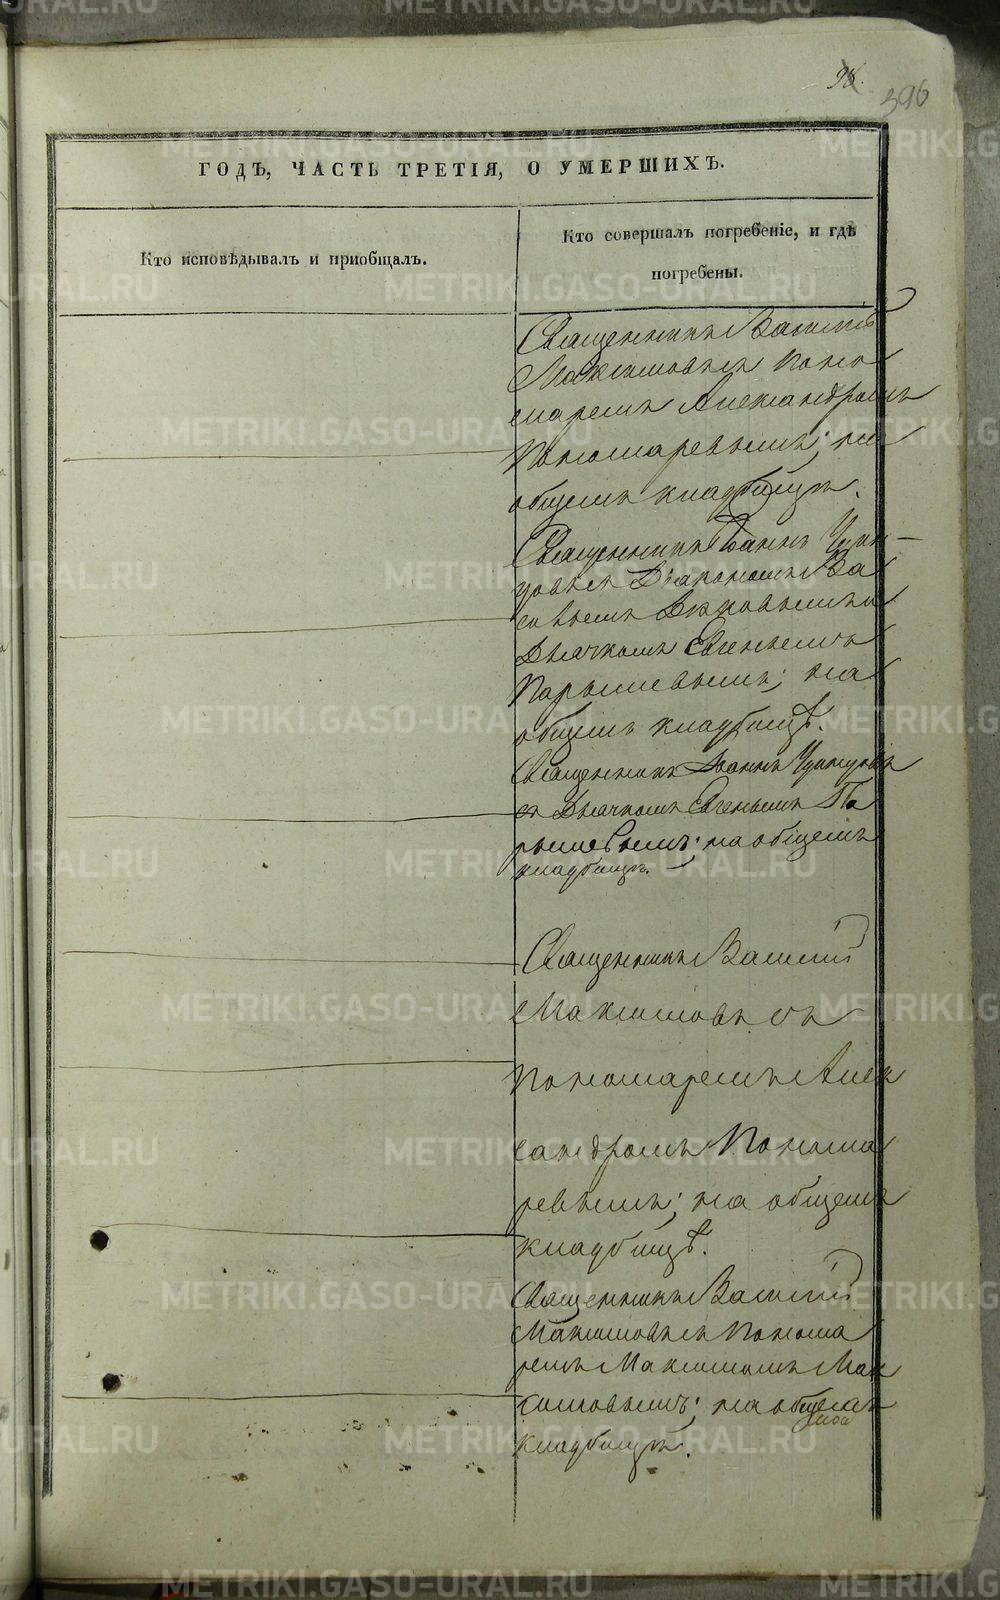 396
ГОДЪ, ЧАСТЬ ТРЕТІЯ, О УМЕРШИХЪ.
Кто исповѣдывалъ и пріобщалъ.
Кто совершалъ погребеніе, и гдѣ
погребены.
Священникъ Василій
Максимовъ съ Поно
маремъ Александромъ
Пономаревымъ; на
общемъ кладбищѣ.
Священникъ Іоаннъ
съ Діакономъ Ва
Дьячкомъ Евгеньемъ
Парышевымъ; на
общемъ кладбищѣ.
Священникъ Іоаннъ
съ Дьячкомъ Евгеньемъ Па
рышевымъ; на общемъ
кладбищѣ.
Священникъ Василій
Максимовъ съ
Пономаремъ Алек
сандромъ Понома
ревымъ; на общемъ
кладбищѣ.
Священникъ Василій
Максимовъ съ Понома
ремъ Максимомъ Мак
симовымъ; на общемъ
кладбищѣ.
METRIKI.GASO-URAL.RU